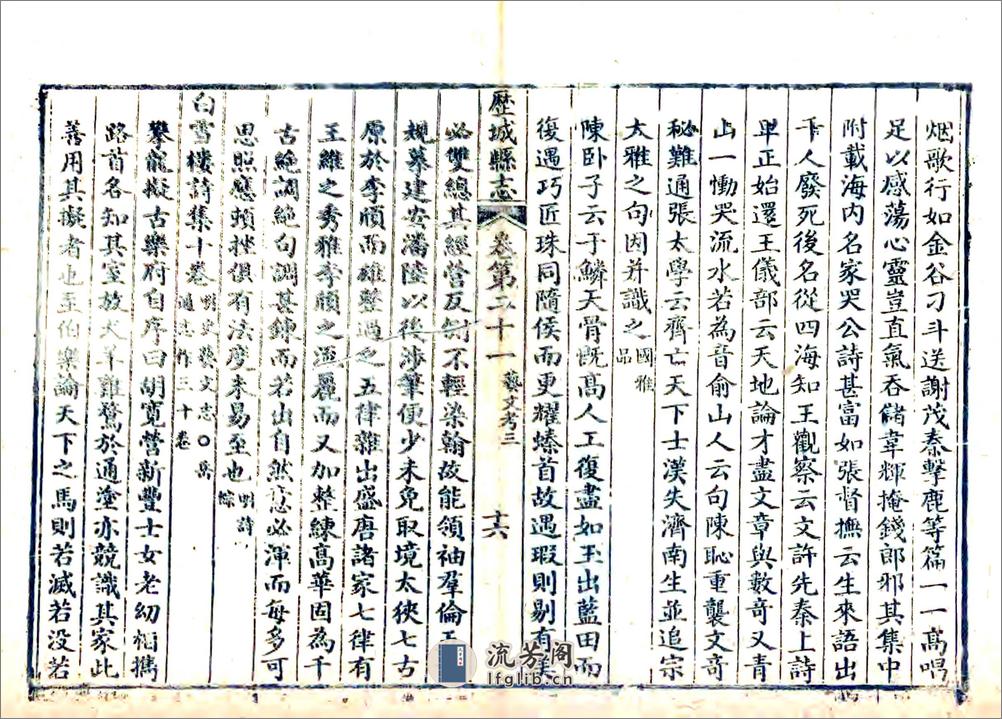 烟歌行如金谷刁斗送謝茂秦擊鹿等篇一一高唱
足以感蕩心靈豈直氣吞儲韋輝掩錢郎邪其集中
附載海內名家哭公詩甚富如張督撫云生來語出
千人廢死後名從四海知王觀察云文許先秦上詩
卑正始還王儀部云天地論才盡文章與數奇又青
山一慟哭流水若為音俞山人云句陳恥重襲文奇
秘難通張太學云齊亡天下士漢失濟南生並追宗
大雅之句因并識之國雅品
陳卧子云于鱗天骨既高人工復盡如玉出藍田而
復遇巧匠珠同隋侯而更耀螓首故遇瑕則剔有美
歷城縣志 卷第二十一 藝文考三 十六
必雙總其經營反覆不輕染翰故能領袖羣倫
規摹建安潘陸以後涉筆便少未免取境太狹七古
原於李頎而雄整過之五律雜出盛唐諸家七律有
王維之秀雅李頎之流麗而又加整練高華固為千
古絶調絶句調甚鍊而若出自然意必渾而每多可
思照應頓挫俱有法度未易至也明詩綜
白雪樓詩集十卷明史藝文志○岳通志作三十卷
攀龍擬古樂府自序曰胡寬營新豐士女老幼相攜
路首各知其室放犬羊雞鶩於通塗亦競識其家此
善用其擬者也至伯樂論天下之馬則若滅若沒若
流芳阁
lfglib.cn